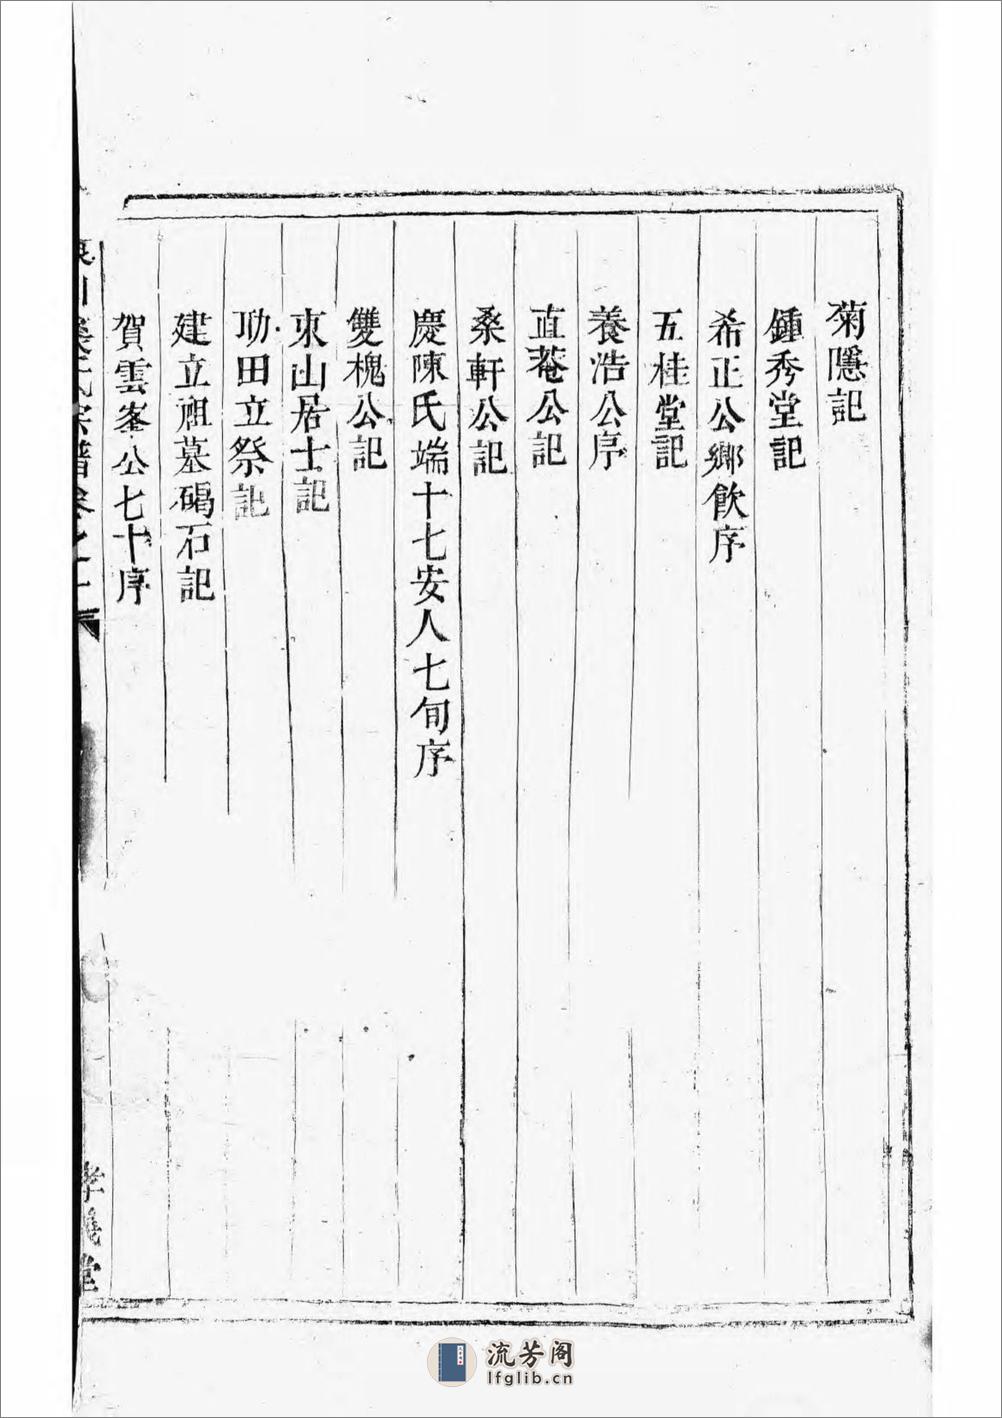 菊隱記
鍾秀堂記
希正公鄉飲序
五桂堂記
養浩公序
直菴公記
桑軒公記
慶陳氏端十七安人七旬序
雙槐公記
東山居士記
助田立祭記
建立祖墓碣石記
賀雲峯公七十序
氏宗譜卷之
孝義堂
流芳阁
lfglib.cn